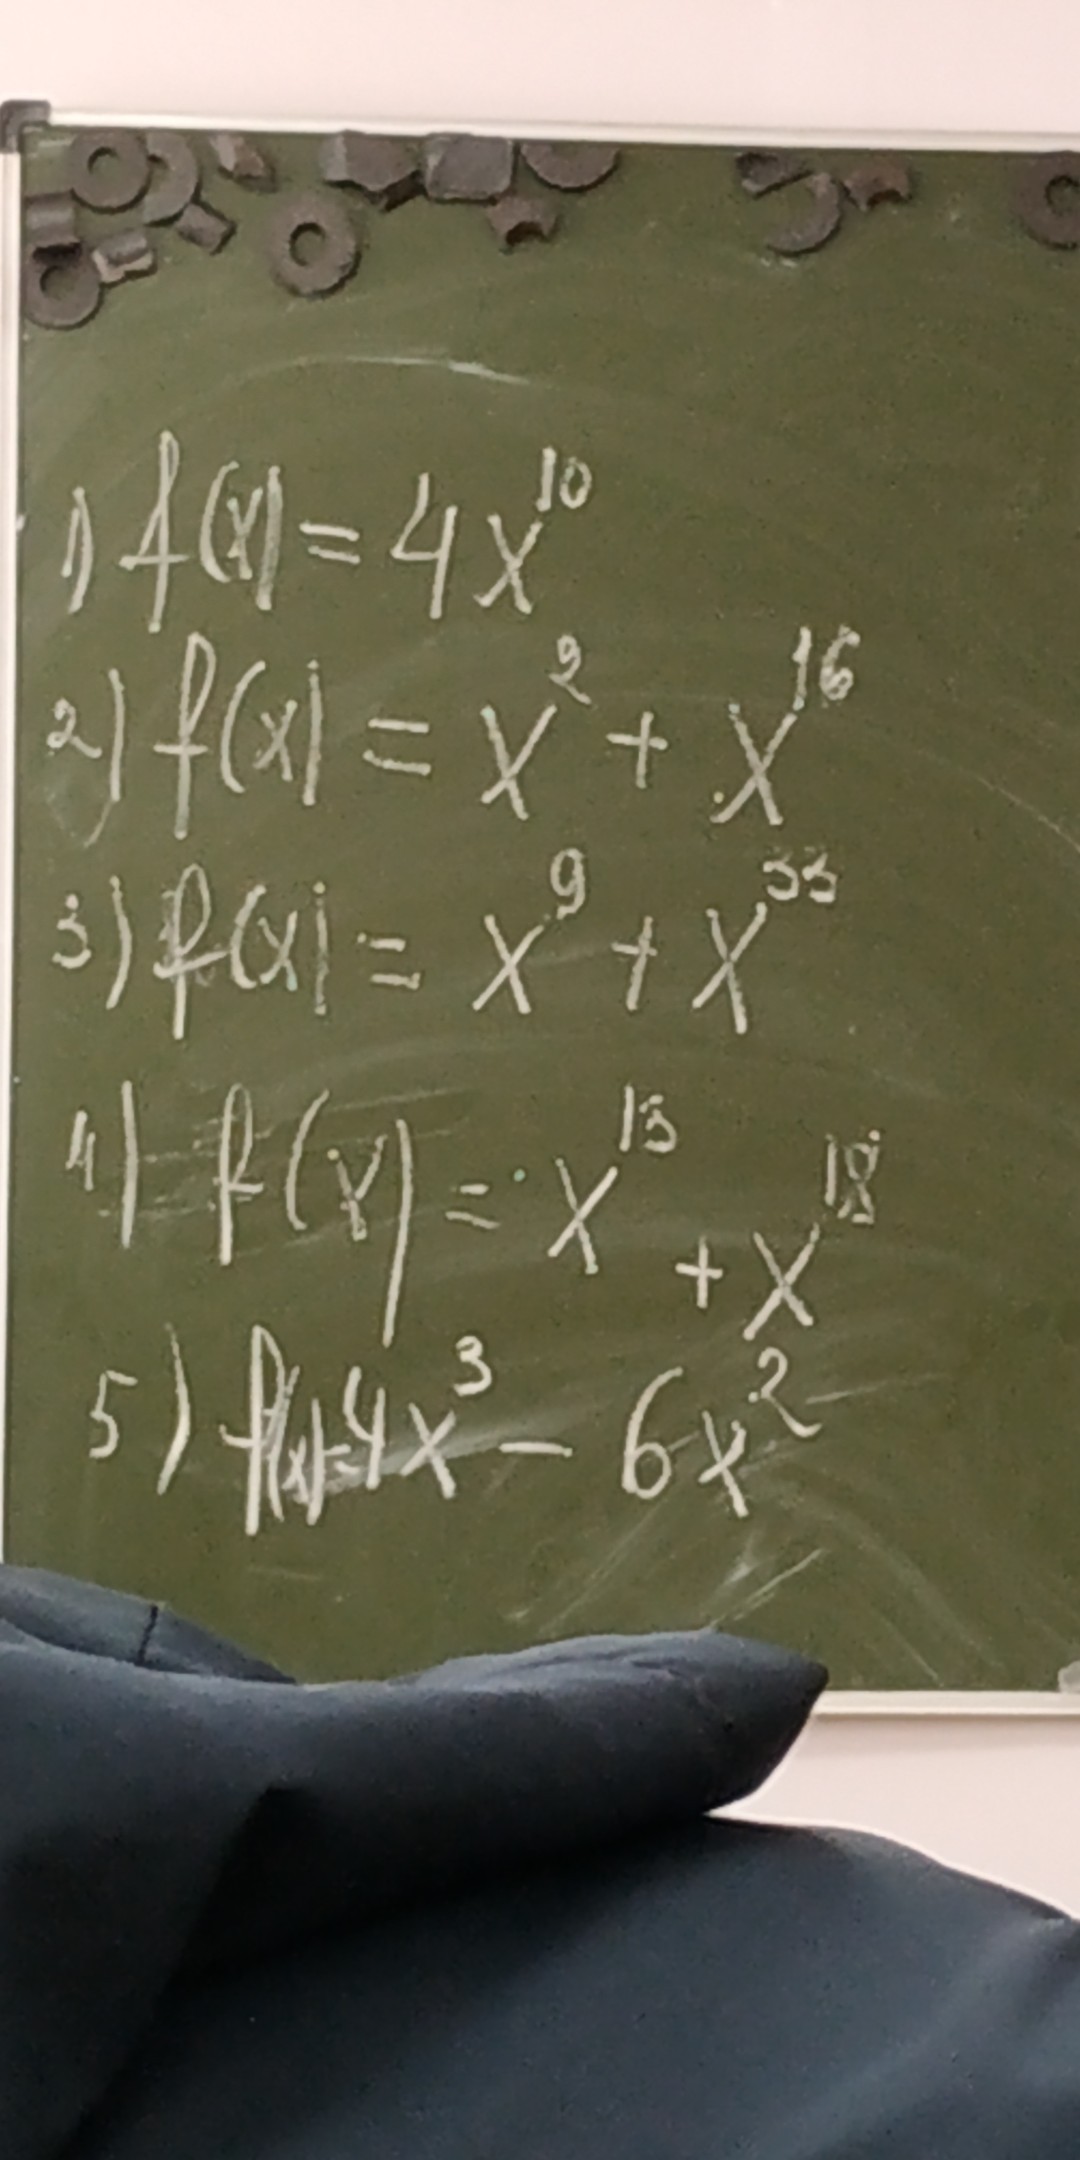 1) f(x) = 4x¹⁰
2) f(x) = x² + x¹⁶
3) f(x) = x⁹ + x³³
4) f(x) = x¹³ + x¹⁸
5) f(x)=4x³ - 6x²